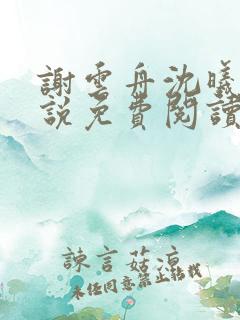 謝雲舟沈曦
說免費閱讀
諫言菇涼
未经同意禁止转载